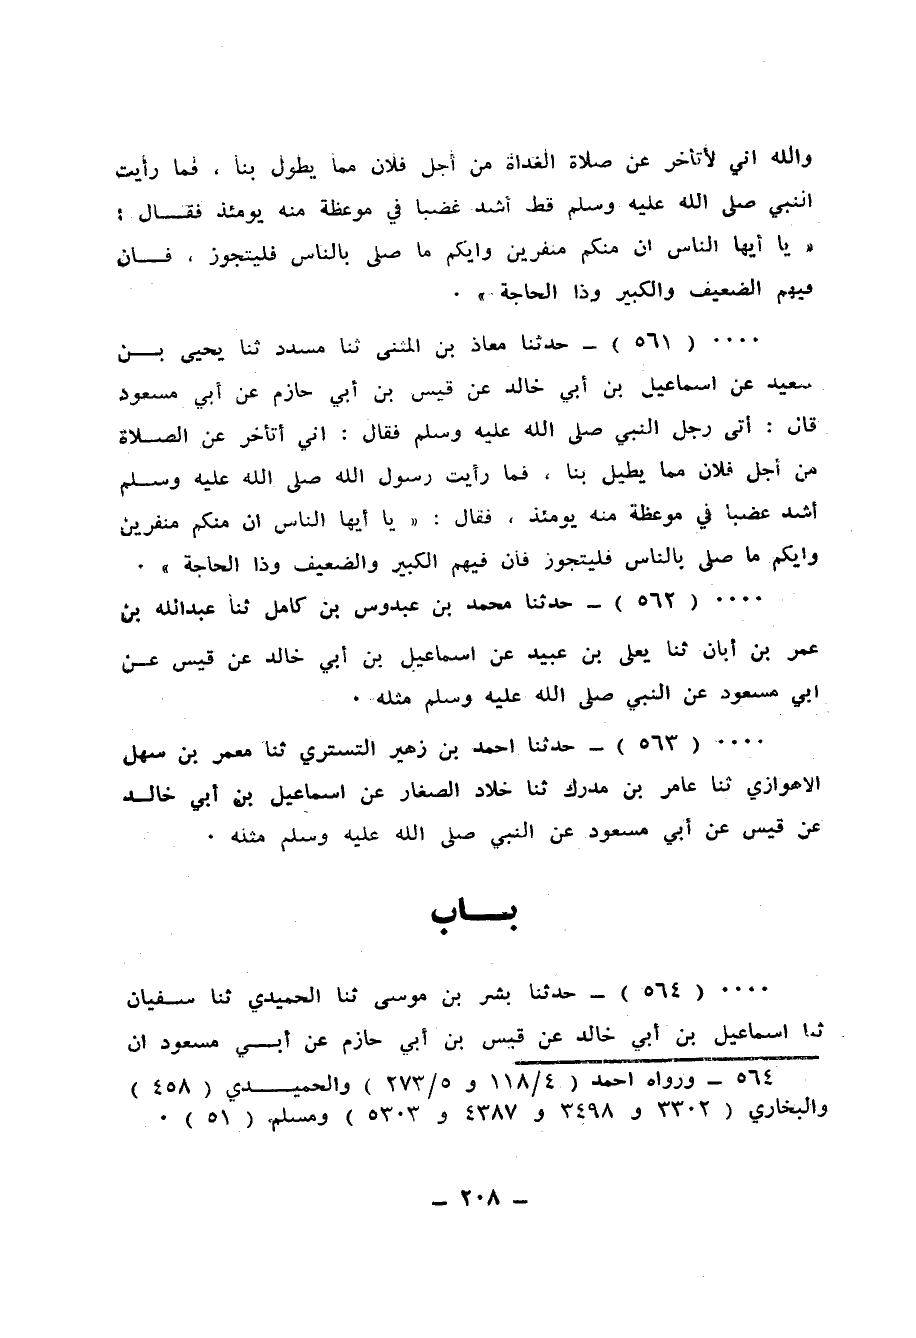 والله اني لأتأخر عن صلاة الغداة من أجل فلان مما يطول بنا ، فما رأيت
النبي صلى الله عليه وسلم قط أشد غضبا في موعظة منه يومئذ فقـــال :
« يا أيها الناس ان منكم منفرين وايكم ما صلى بالناس فليتجوز ، فـــان
فيهم الضعيف والكبير وذا الحاجة » ٠
٠٠٠٠ ( ٥٦١ ) ــ حدثنا معاذ بن المثنى ثنا مسدد ثنا يحيى بـــن
سعيد عن اسماعيل بن أبي خالد عن قيس بن أبي حازم عن أبي مسعود
قال : أتى رجل النبي صلى الله عليه وسلم فقال : اني أتأخر عن الصــلاة
من أجل فلان مما يطيل بنا ، فما رأيت رسول الله صلى الله عليه وســلم
أشد غضبا في موعظة منه يومئذ ، فقال : « يا أيها الناس ان منكم منفرين
وايكم ما صلى بالناس فليتجوز فأن فيهم الكبير والضعيف وذا الحاجة » ٠
٠٠٠٠ ( ٥٦٢ ) ــ حدثنا محمد بن عبدوس بن كامل ثنا عبدالله بن
عمر بن أبان ثنا يعلى بن عبيد عن اسماعيل بن أبي خالد عن قيس عــن
ابي مسعود عن النبي صلى الله عليه وسلم مثله ٠
٠٠٠٠ ( ٥٦٣ ) ــ حدثنا احمد بن زهير التستري ثنا معمر بن سهل
الاهوازي ثنا عامر بن مدرك ثنا خلاد الصفار عن اسماعيل بن أبي خالــد
عن قيس عن أبي مسعود عن النبي صلى الله عليه وسلم مثله ٠
بـــاب
٠٠٠٠ ( ٥٦٤ ) ــ حدثنا بشر بن موسى ثنا الحميدي ثنا ســفيان
ثنا اسماعيل بن أبي خالد عن قيس بن أبي حازم عن أبـــي مسعود ان
٥٦٤ ــ ورواه احمد ( ١١٨/٤ و ٢٧٣/٥ ) والحميـــدي ( ٤٥٨ )
والبخاري ( ٣٣٠٢ و ٣٤٩٨ و ٤٣٨٧ و ٥٣٠٣ ) ومسلم ( ٥١ ) ٠
ــ ٢٠٨ ــ